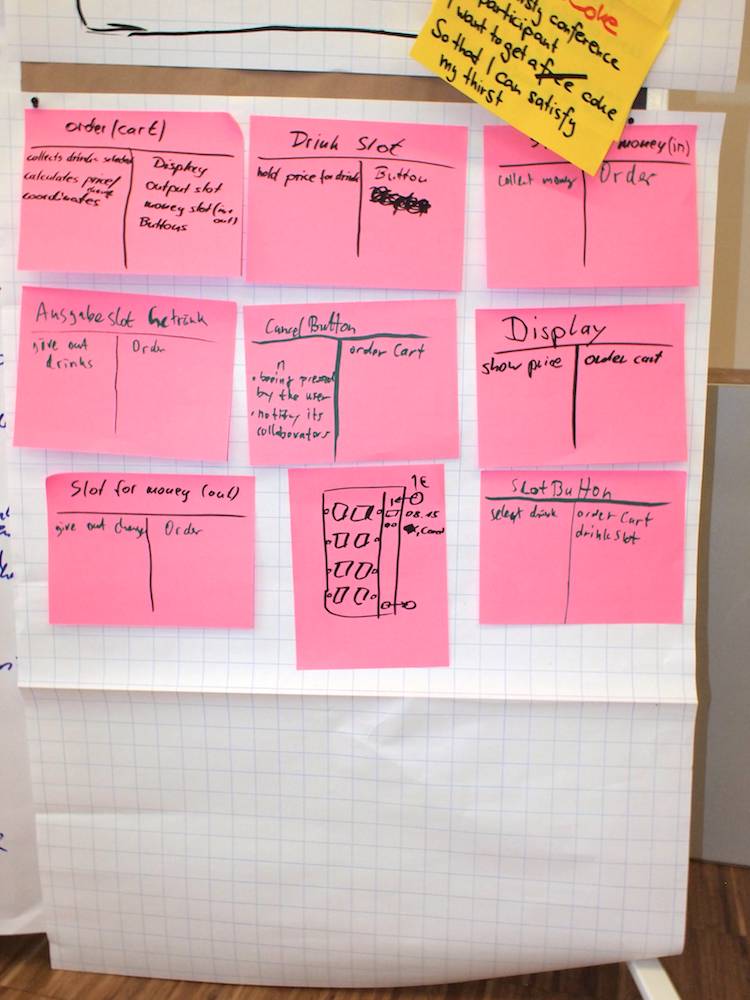 Coke
thirsty conference
participant
I want to get a free coke
So that I can satisfy
my thirst
order (cart)
collects drinks selected
calculates price/
change
coordinates
Display
output slot
money slot (in
out)
Buttons
Drink Slot
hold price for drink
Button
money (in)
collect money
Order
Ausgabeslot Getränk
give out
drinks
Order
Cancel Button
n
• beeing pressed
by the user
• notify its
collaborators
order Cart
Display
show price
order cart
Slot for money (out)
give out change
Order
1€
08.15
Cancel
Slot Button
select drink
order Cart
drink slot